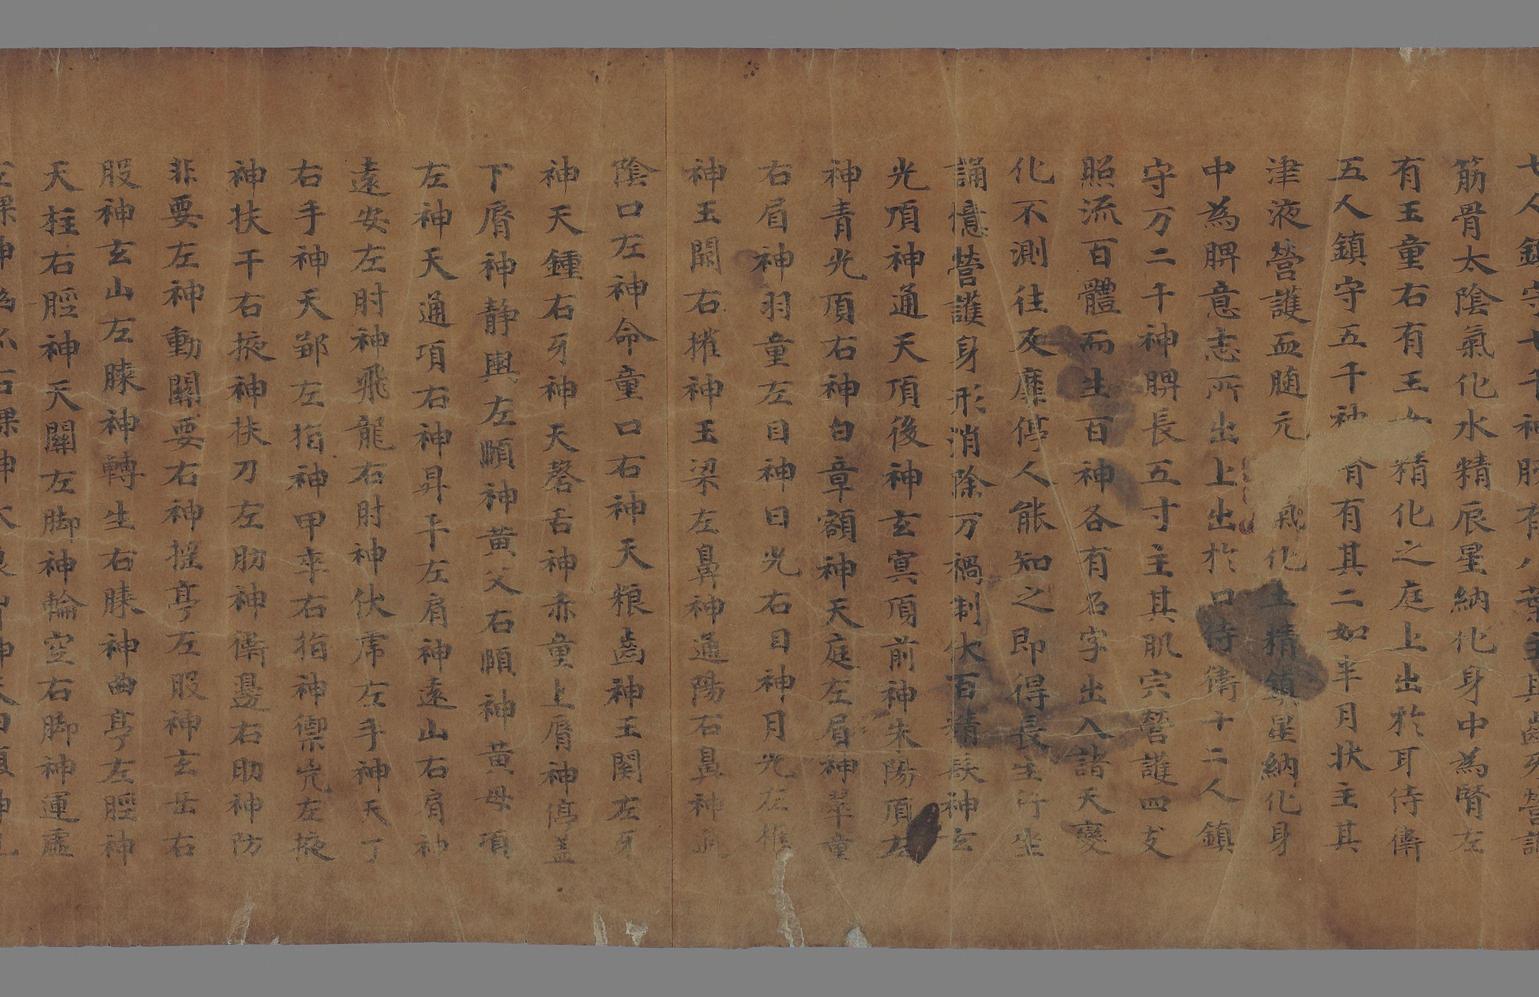 七人鎮守七千神
筋骨太陰氣化水精辰星納化身中為腎左
有玉童右有玉女精化之庭上出於耳侍衛
五人鎮守五千神腎有其二如半月状主其
津液營護血随元氣化土精鎮星納化身
中為脾意志所出上出於口侍衛十二人鎮
守万二千神脾長五寸主其肌宍營護四支
照流百體而生百神各有名字出入諸天變
化不測往及靡停人能知之即得長生行坐
誦憶營護身形消除万禍制伏百精髮神玄
光頂神通天頂後神玄㝠頂前神朱陽頂左
神青光頂右神白章額神天庭左眉神翠童
右眉神羽童左目神日光右目神月光左
神玉闕右權神玉梁左鼻神通陽右鼻神通
陰口左神命童口右神天粮齒神玉閏左牙
神天鍾右牙神天磬舌神赤童上脣神停盖
下脣神静輿左頤神黄父右頤神黄母項
左神天通項右神昇平左肩神遠山右肩神
遠安左肘神飛龍右肘神伏虎左手神天丁
右手神天郢左指神甲卒右指神禦兇左掖
神扶干右掖神扶刀左肋神衛邊右肋神防
非要左神動關要右神摇亭左股神玄岳右
股神玄山左膝神轉生右膝神曲亭左脛神
天柱右脛神天關左脚神輪空右脚神運虛